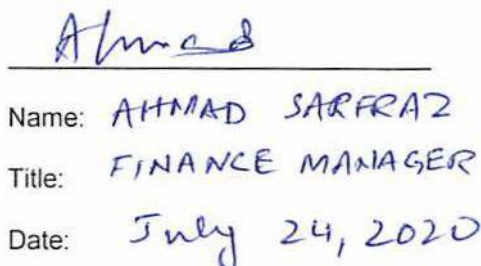 Ahmad
Name: AHMAD SARFRAZ
Title: FINANCE MANAGER
Date: July 24, 2020